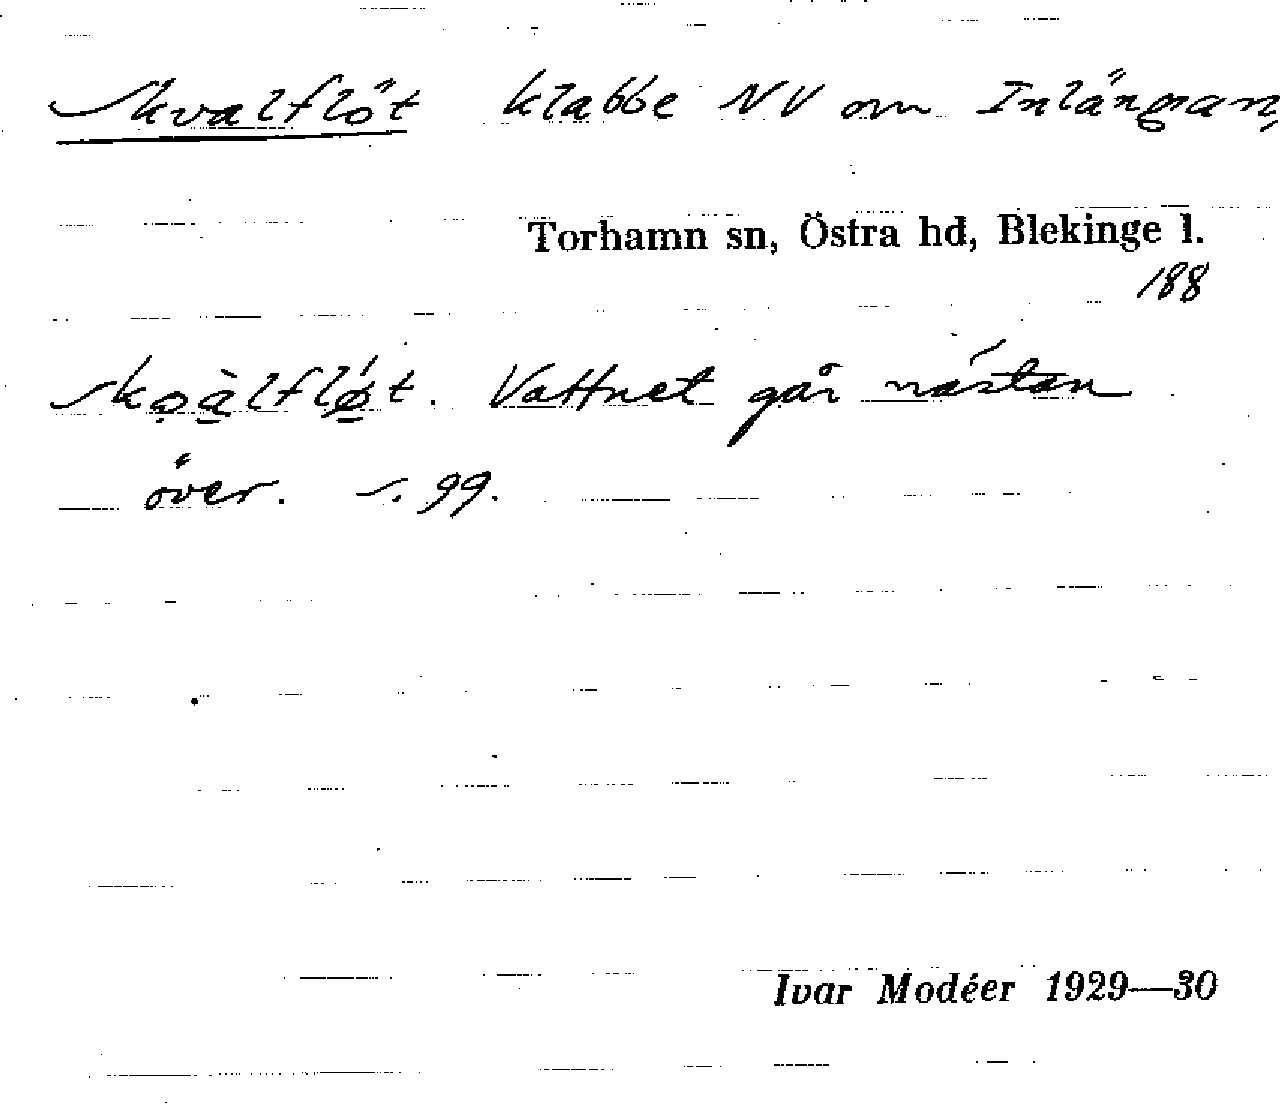 Skvalflöt klabbe NV om Inlängan,
Torhamn sn, Östra hd, Blekinge l.
188
skọàlflǿt. Vattnet går nästan
över. s. 99.
Ivar Modéer 1929—30